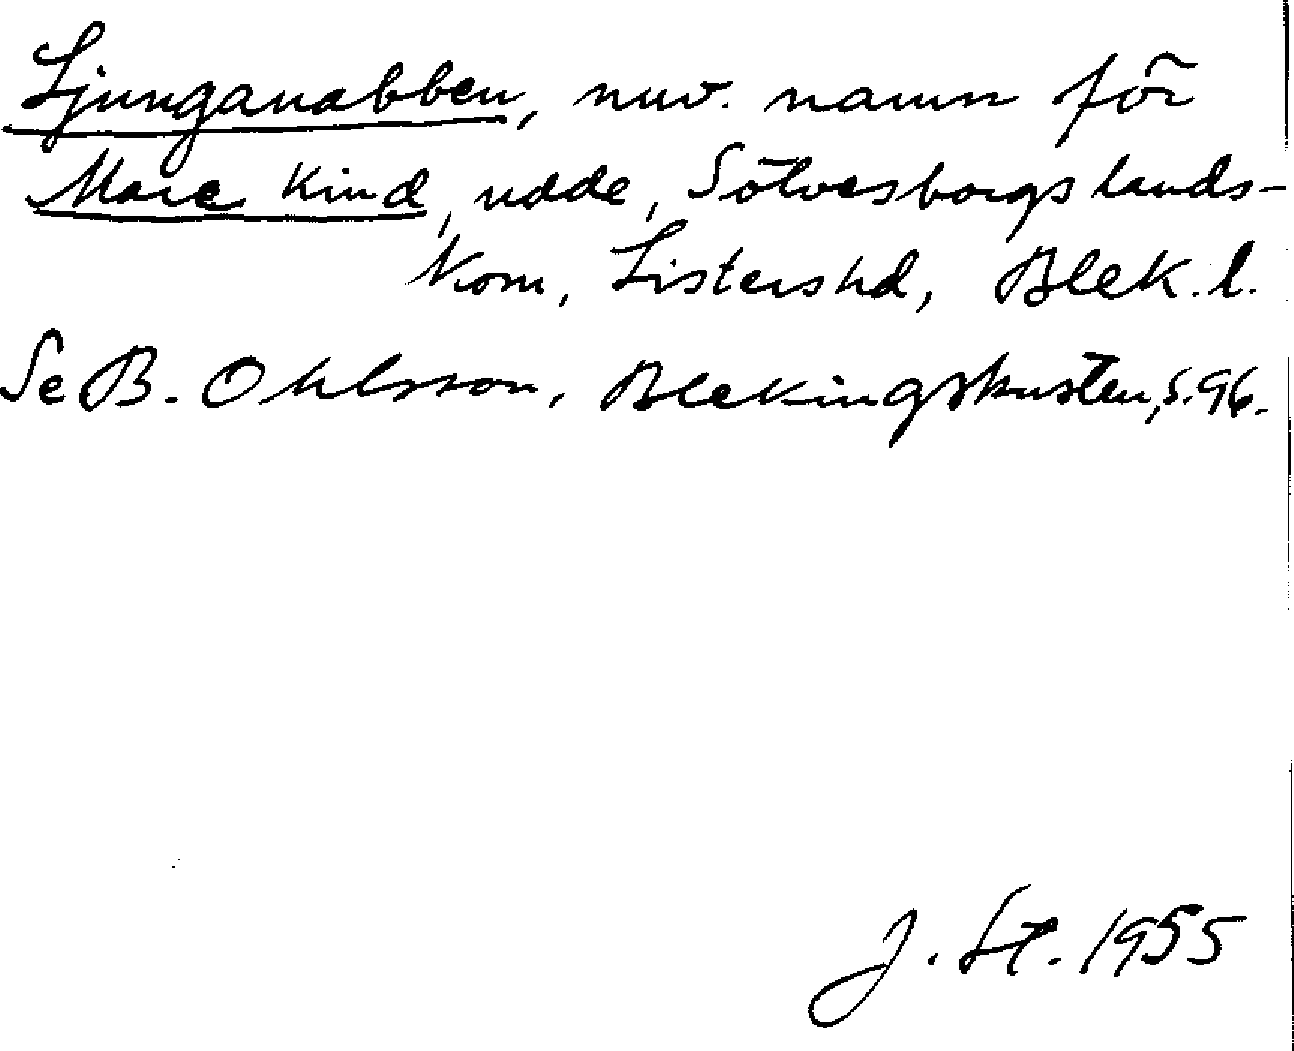 Ljunganabben, nuv. namn för
Mare Kind, udde, Sölvesborgs lands-
kom, Listershd, Blek. l.
Se B. Ohlsson, Blekingskusten, s. 96.
J. St. 1955